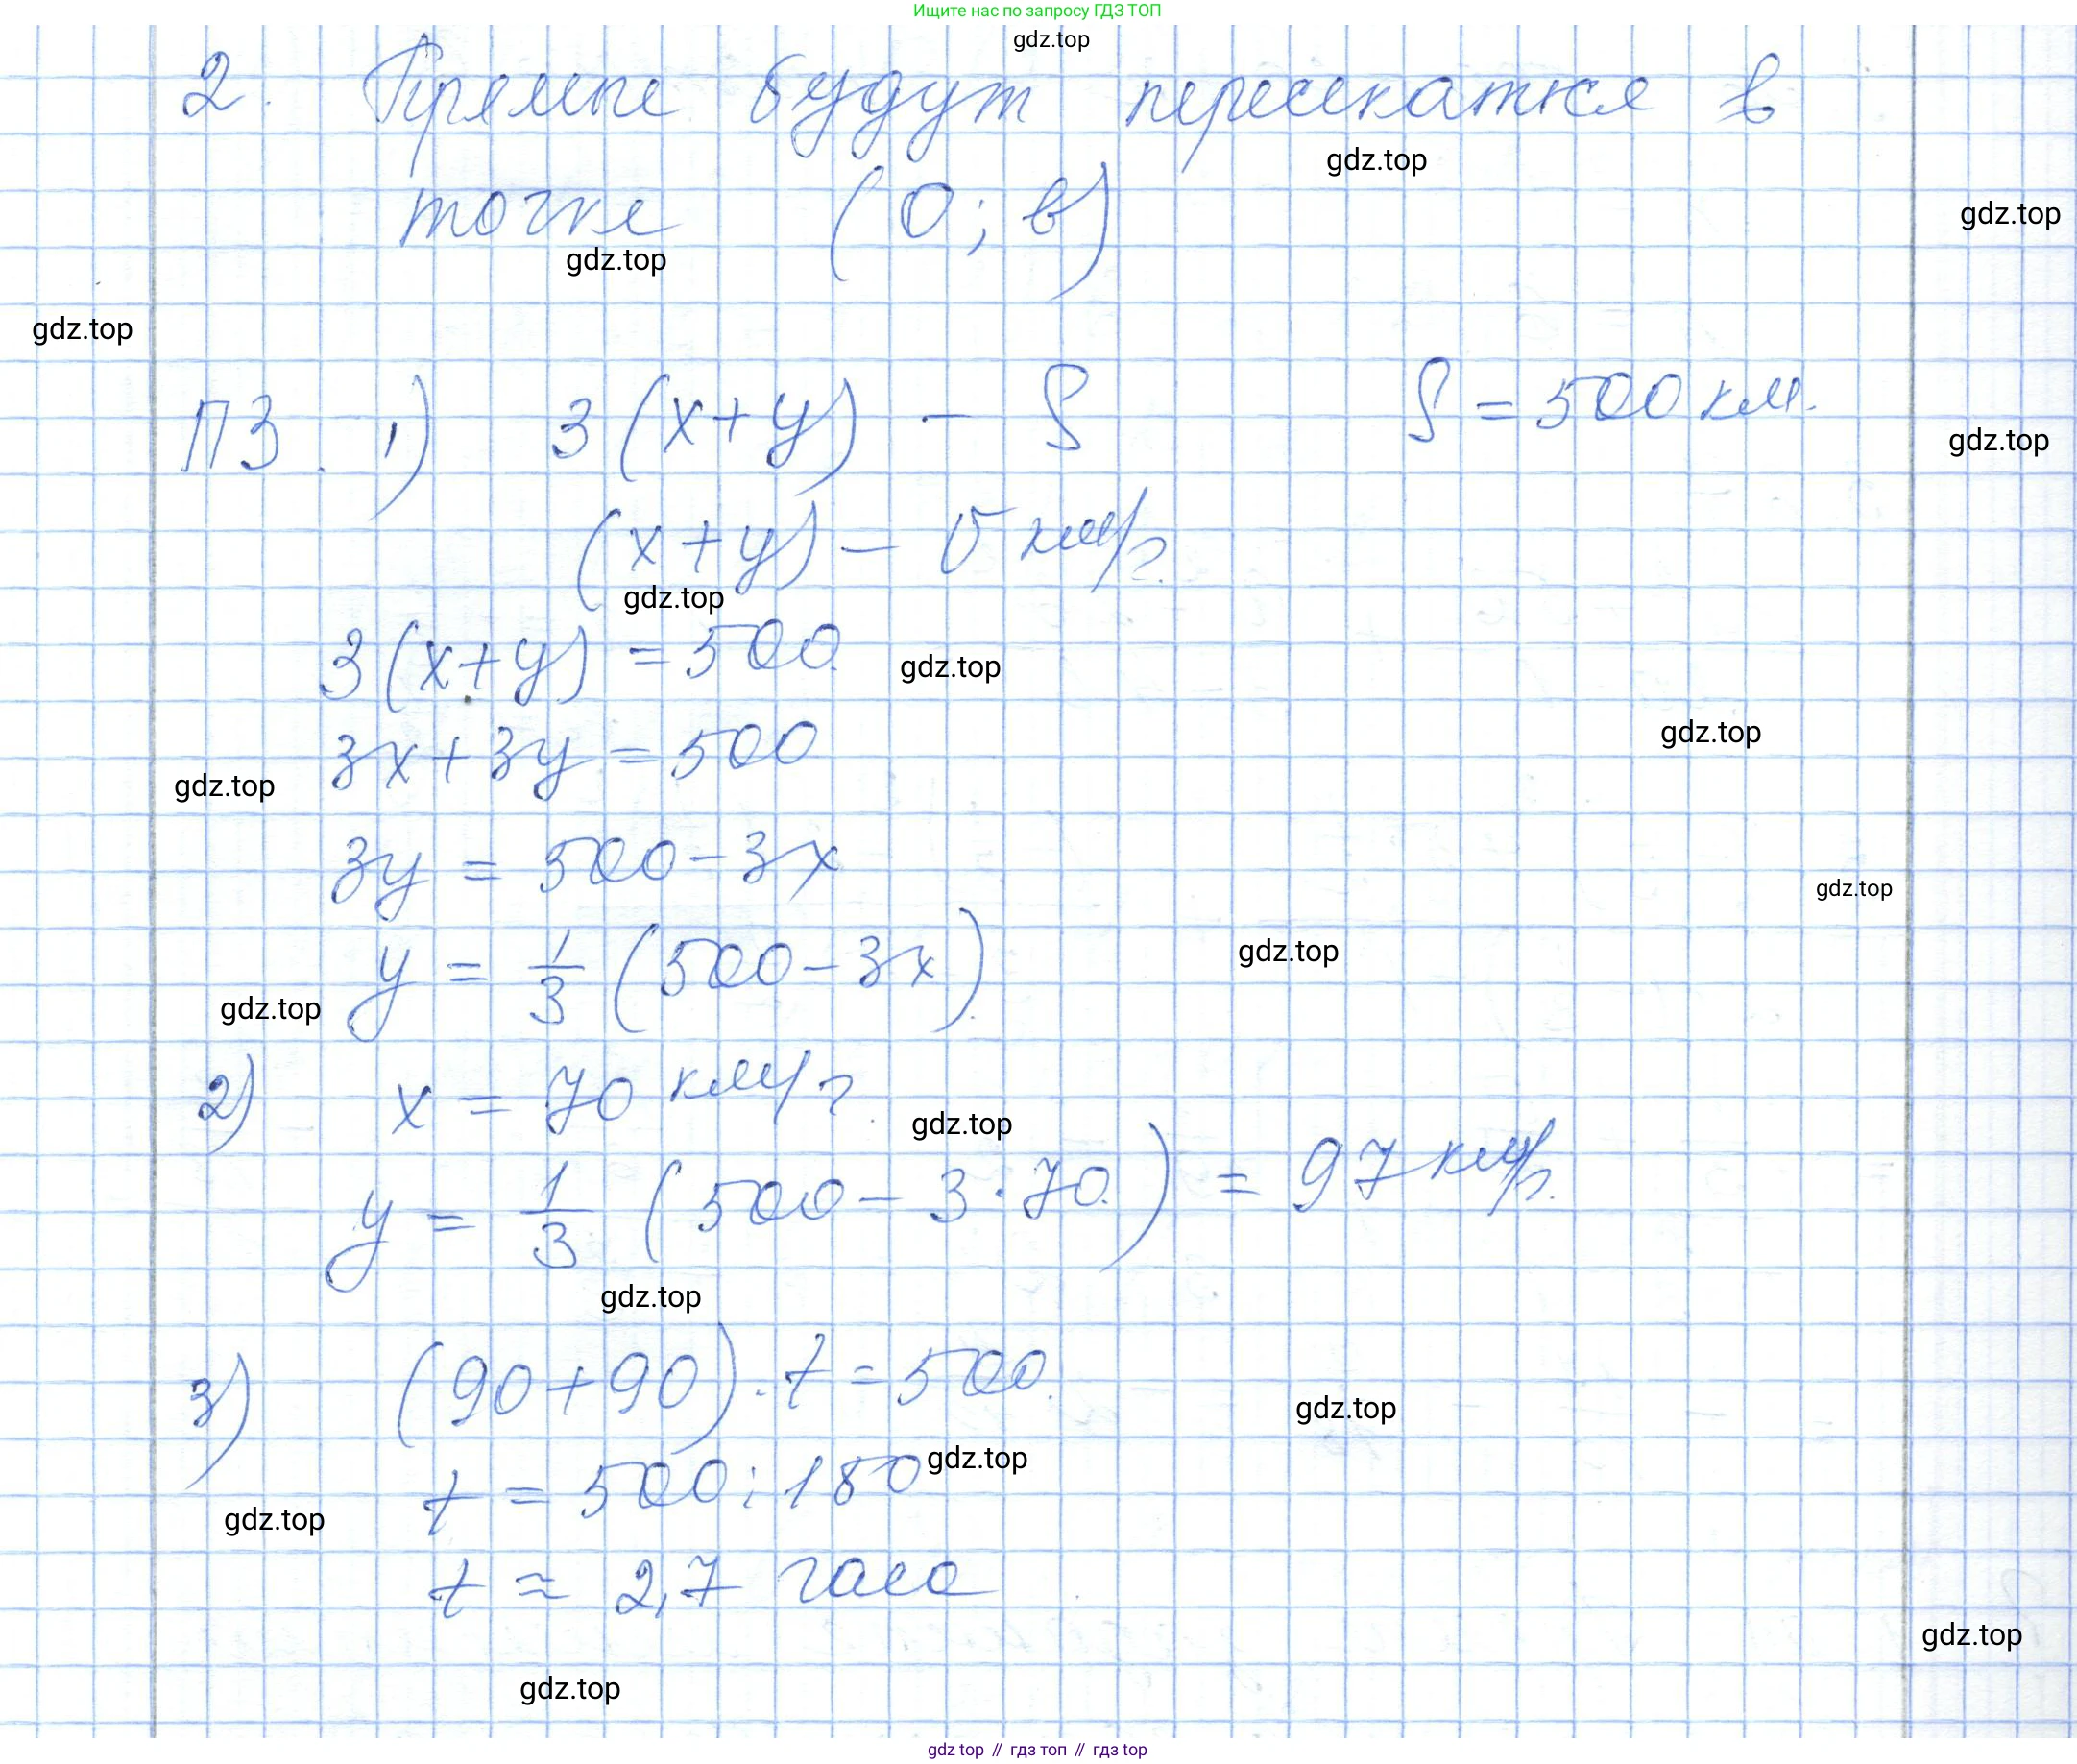 Ищите нас по запросу ГДЗ ТОП
gdz.top
2. Прямые будут пересекаться в
gdz.top
точке (0; в)
gdz.top
gdz.top
gdz.top
П3. 1) 3(x+y) – S S = 500 км.
gdz.top
(x+y) – v км/ч.
gdz.top
3(x+y) = 500
gdz.top
gdz.top
3x+3y = 500
gdz.top
3y = 500–3x
gdz.top
y = 1/3 (500–3x)
gdz.top
gdz.top
2) x = 70 км/ч.
gdz.top
y = 1/3 (500 – 3·70) = 97 км/ч.
gdz.top
3) (90+90)·t = 500
gdz.top
t = 500:180
gdz.top
gdz.top
t ≈ 2,7 часа
gdz.top
gdz.top
gdz top // гдз топ // гдз top